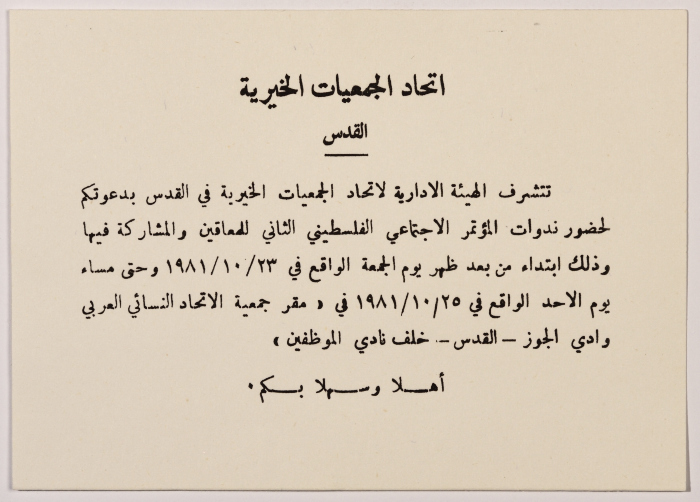 اتحاد الجمعيات الخيرية
القدس
تتشرف الهيئة الادارية لاتحاد الجمعيات الخيرية في القدس بدعوتكم
لحضور ندوات المؤتمر الاجتماعي الفلسطيني الثاني للمعاقين والمشاركة فيها
وذلك ابتداء من بعد ظهر يوم الجمعة الواقع في ١٩٨١/١٠/٢٣ وحتى مساء
يوم الاحد الواقع في ١٩٨١/١٠/٢٥ في « مقر جمعية الاتحاد النسائي العربي
وادي الجوز - القدس - خلف نادي الموظفين »
أهـلا وسـهلا بـكم .